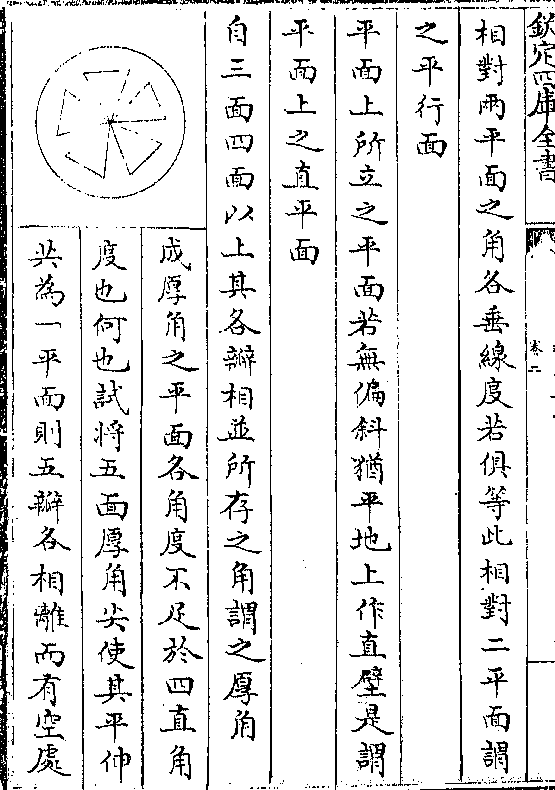 欽定四庫全書
卷二
相對兩平面之角各垂線度若俱等此相對二平面謂
之平行面
平面上所立之平面若無偏斜猶平地上作直壁是謂
平面上之直平面
自三面四面以上其各瓣相並所存之角謂之厚角
成厚角之平面各角度不足於四直角
度也何也試將五面厚角尖使其平伸
共為一平面則五瓣各相離而有空處